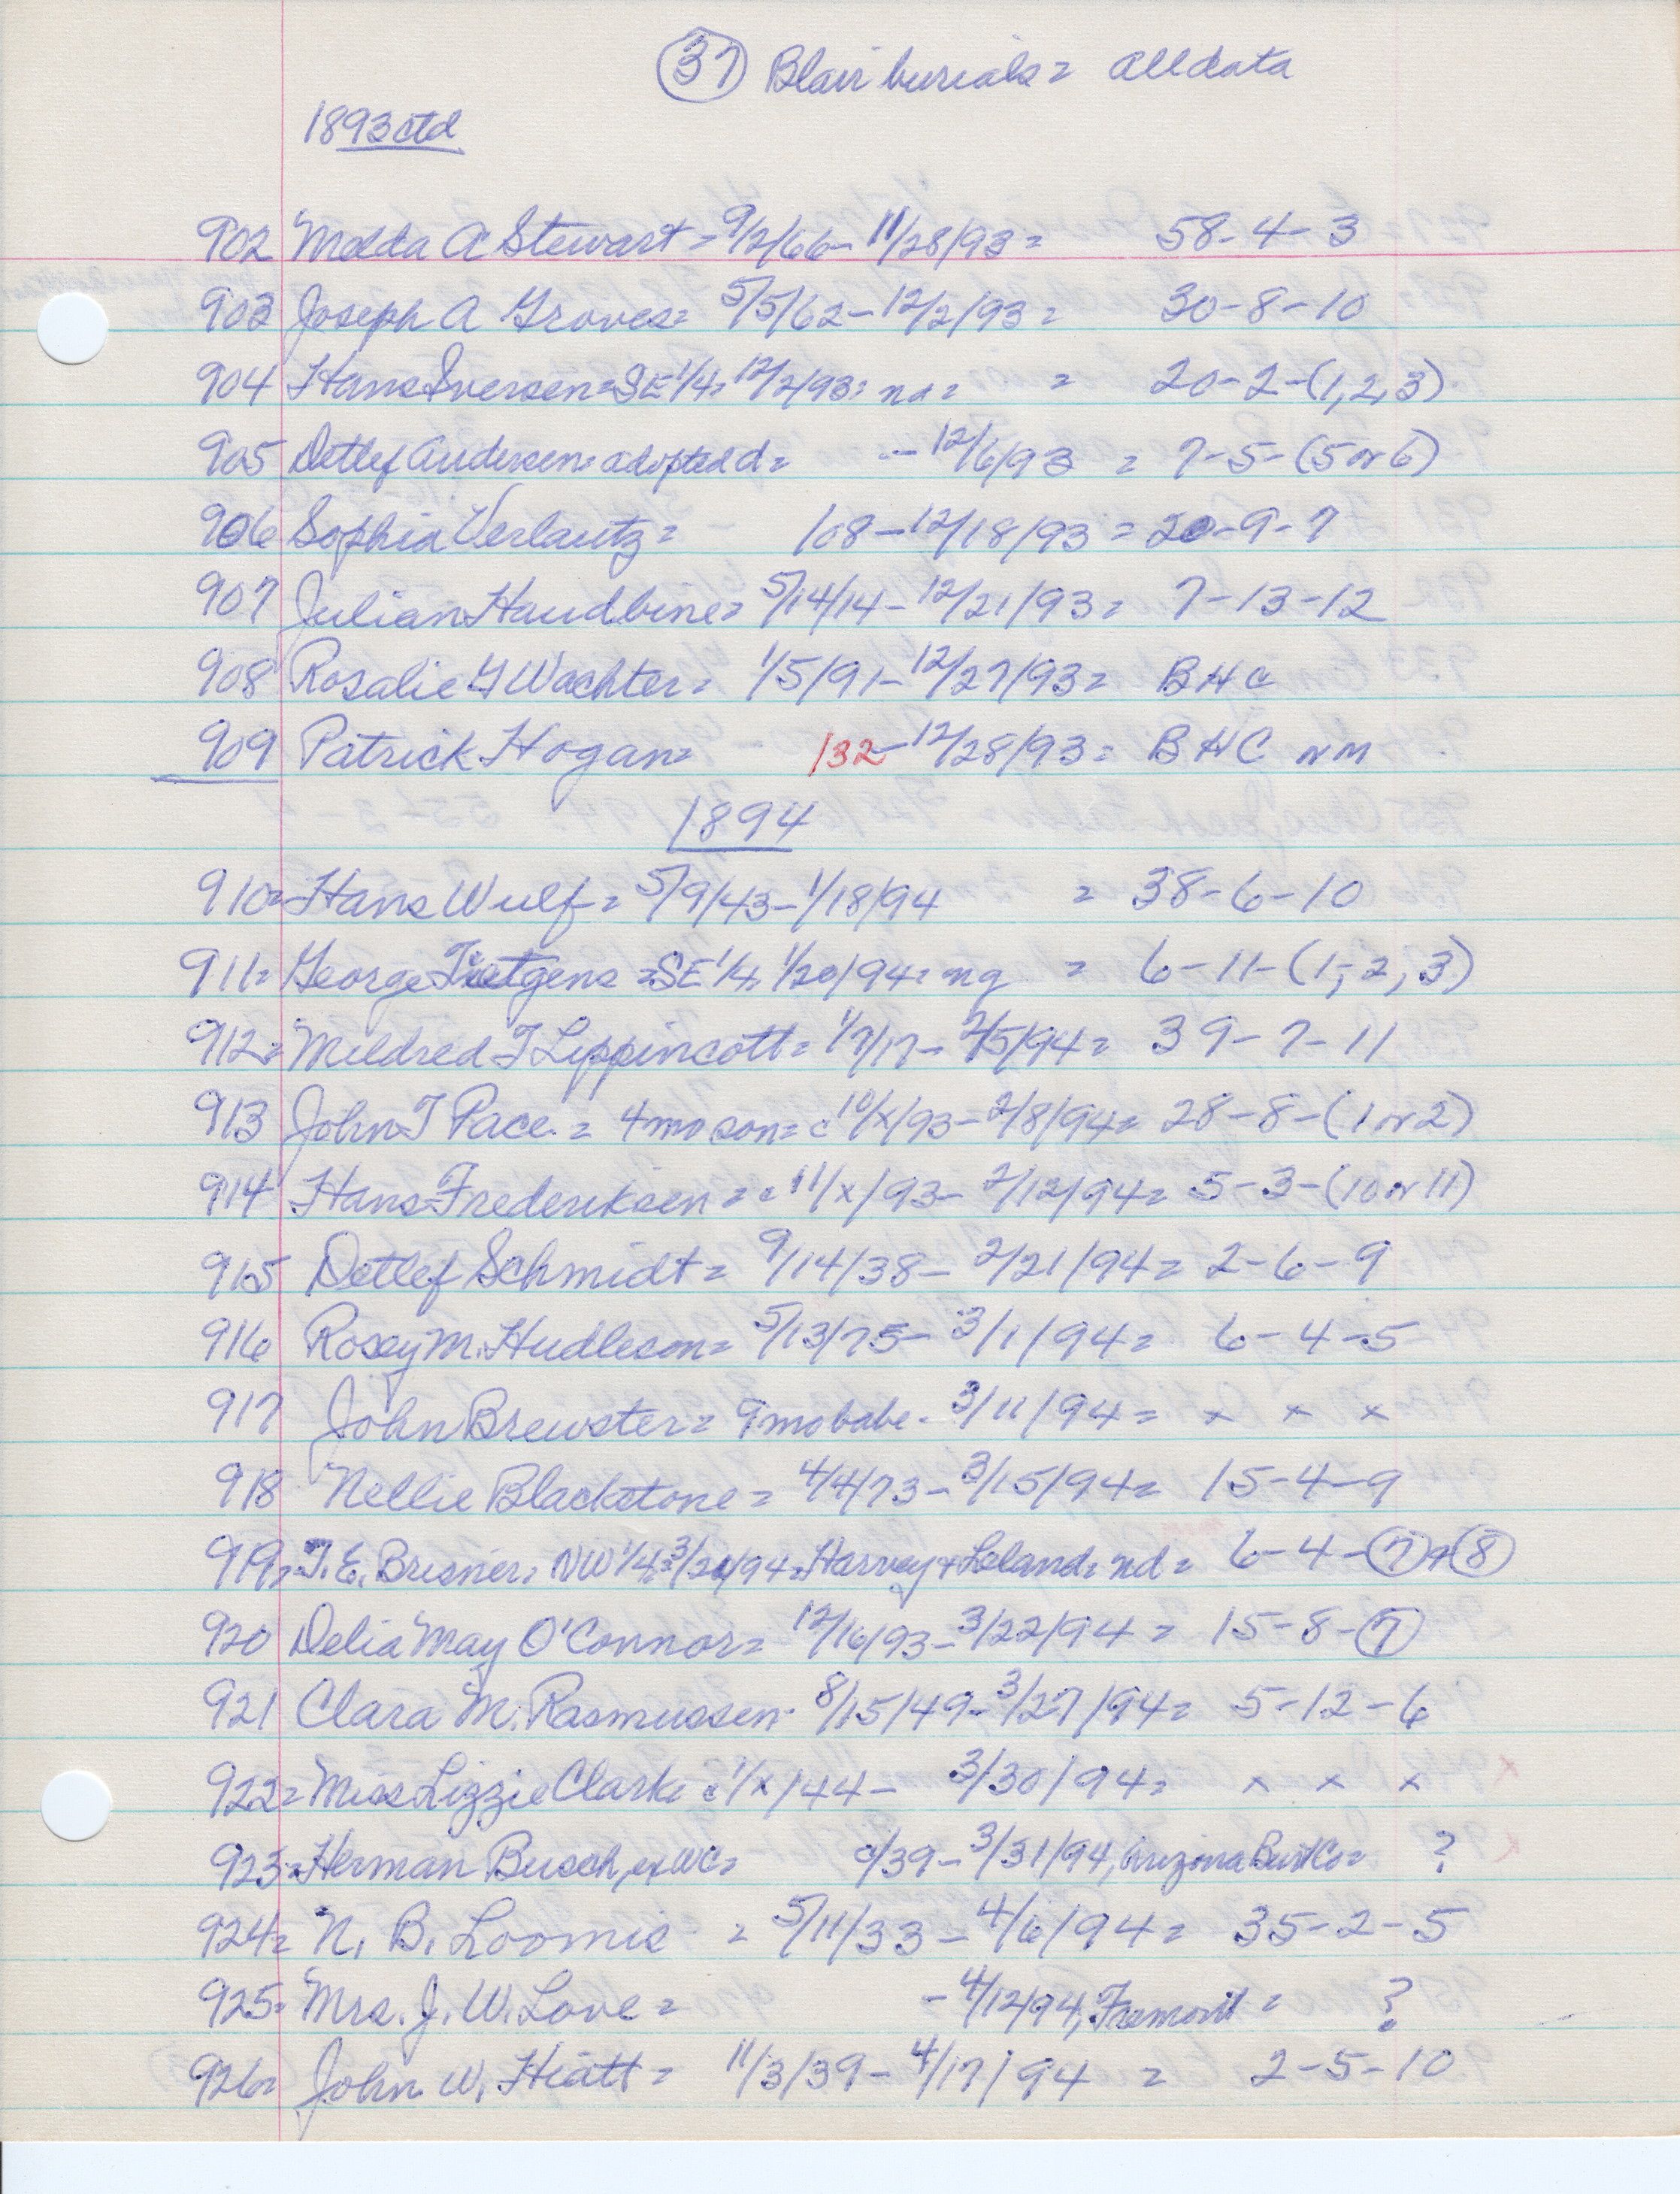 37 Blair burials = all data
1893 ctd
902 Melda A Stewart = 9/2/66 - 11/28/93 = 58-4-3
903 Joseph A Groves = 5/5/62 - 12/2/93 = 30-8-10
904 Hans Iversen = SE 1/4, 12/2/93: na = = 20-2-(1,2,3)
905 Detlef Andersen = adopted d = - 12/6/93 = 7-5-(5 or 6)
906 Sophia Verlautz = 108 - 12/18/93 = 20-9-7
907 Julian Haudbine = 5/14/14 - 12/21/93 = 7-13-12
908 Rosalie G Wachter = 1/5/91 - 12/27/93 = BHC
909 Patrick Hogan = 132 - 12/28/93 = BHC NM
1894
910 = Hans Wulf = 5/9/43 - 1/18/94 = 38-6-10
911 = George Tietgens = SE 1/4, 1/20/94 = ng = 6-11-(1,2,3)
912 = Mildred T Lippincott = 1/7/17 - 2/5/94 = 39-7-11
913 John T Pace = 4 mo son = c 10/x/93 - 2/8/94 = 28-8-(1 or 2)
914 Hans Frederiksen = c 11/x/93 - 2/12/94 = 5-3-(10 or 11)
915 Detlef Schmidt = 9/14/38 - 2/21/94 = 2-6-9
916 Rosey M. Hudleson = 5/13/75 - 3/1/94 = 6-4-5
917 John Brewster = 9 mo babe - 3/11/94 = x x x
918 Nellie Blackstone = 4/4/73 - 3/15/94 = 15-4-9
919 = T. E. Brisner, NW 1/4 = 3/20/94 = Harvey + Leland = nd = 6-4-7+8
920 Delia May O'Connor = 12/16/93 - 3/22/94 = 15-8-7
921 Clara M. Rasmussen - 8/15/49 - 3/27/94 = 5-12-6
922 = Miss Lizzie Clark = c 1/x/44 - 3/30/94 = x x x
923 = Herman Busch, ex WC = c/39 - 3/31/94, Arizona Burt Co = ?
924 = N. B. Loomis = 5/11/33 - 4/6/94 = 35-2-5
925 = Mrs. J. W. Love = - 4/12/94, Fremont = ?
926 = John W. Hiatt = 11/3/39 - 4/17/94 = 2-5-10